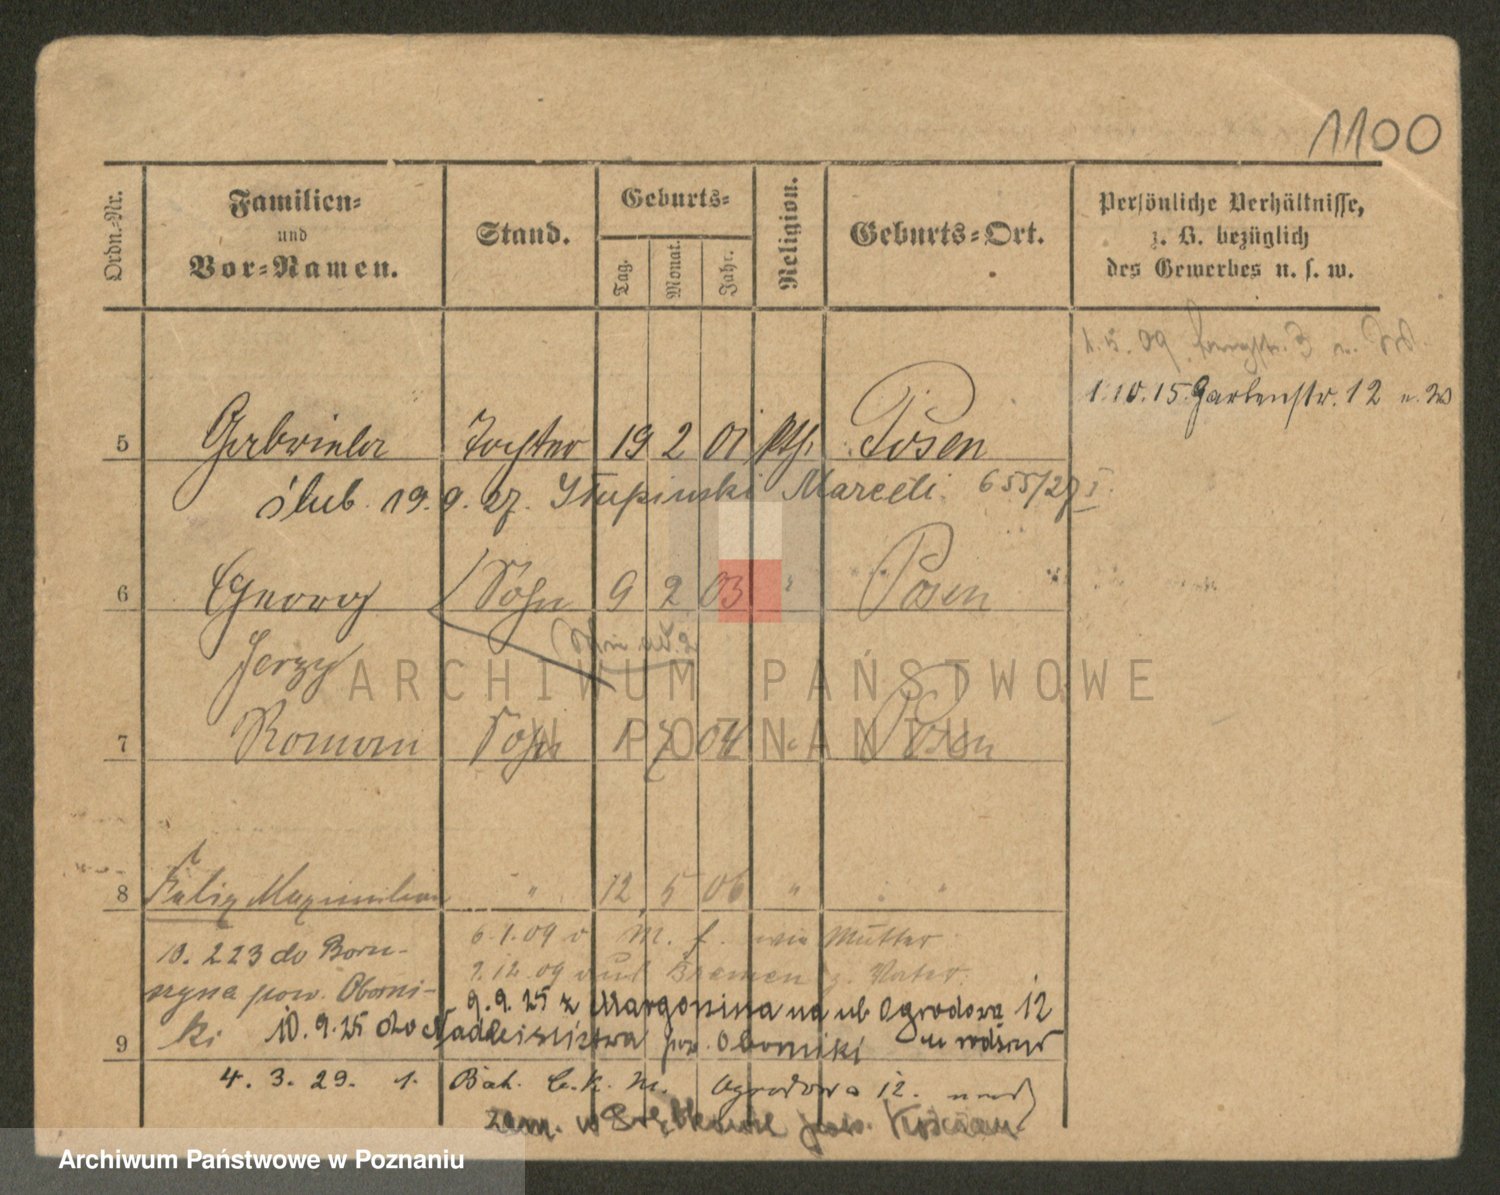 1100
Ordn.-Nr.
Familien-
und
Vor-Namen.
Stand.
Geburts-
Tag.
Monat.
Jahr.
Religion.
Geburts-Ort.
Persönliche Verhältnisse,
z. B. bezüglich
des Gewerbes u. s. w.
1.10.15. Gartenstr. 12
5 Gabriela Tochter 19 2 01 kth. Posen
ślub. 19.9.27. Słupinski Marceli 655/27
6 Georg Sohn 9 2 03 " Posen
Jerzy
7 Roman Sohn 1 7 04 " Posen
8 Felix Maximilian " 12 5 06 " "
6.1.09 v M. f. wie Mutter
10. 2 23 do
9.12.09 Bremen z. Vater.
pow. Oborni-
9.9.25 z Margonina na ul. Ogrodowa 12
ki 10.9.25 do Nadleśnictwa pow. Oborniki
9
4. 3. 29. 1. Bat. Ogrodowa 12.
zam. w pow. Kościan
ARCHIWUM PAŃSTWOWE
W POZNANIU
Archiwum Państwowe w Poznaniu